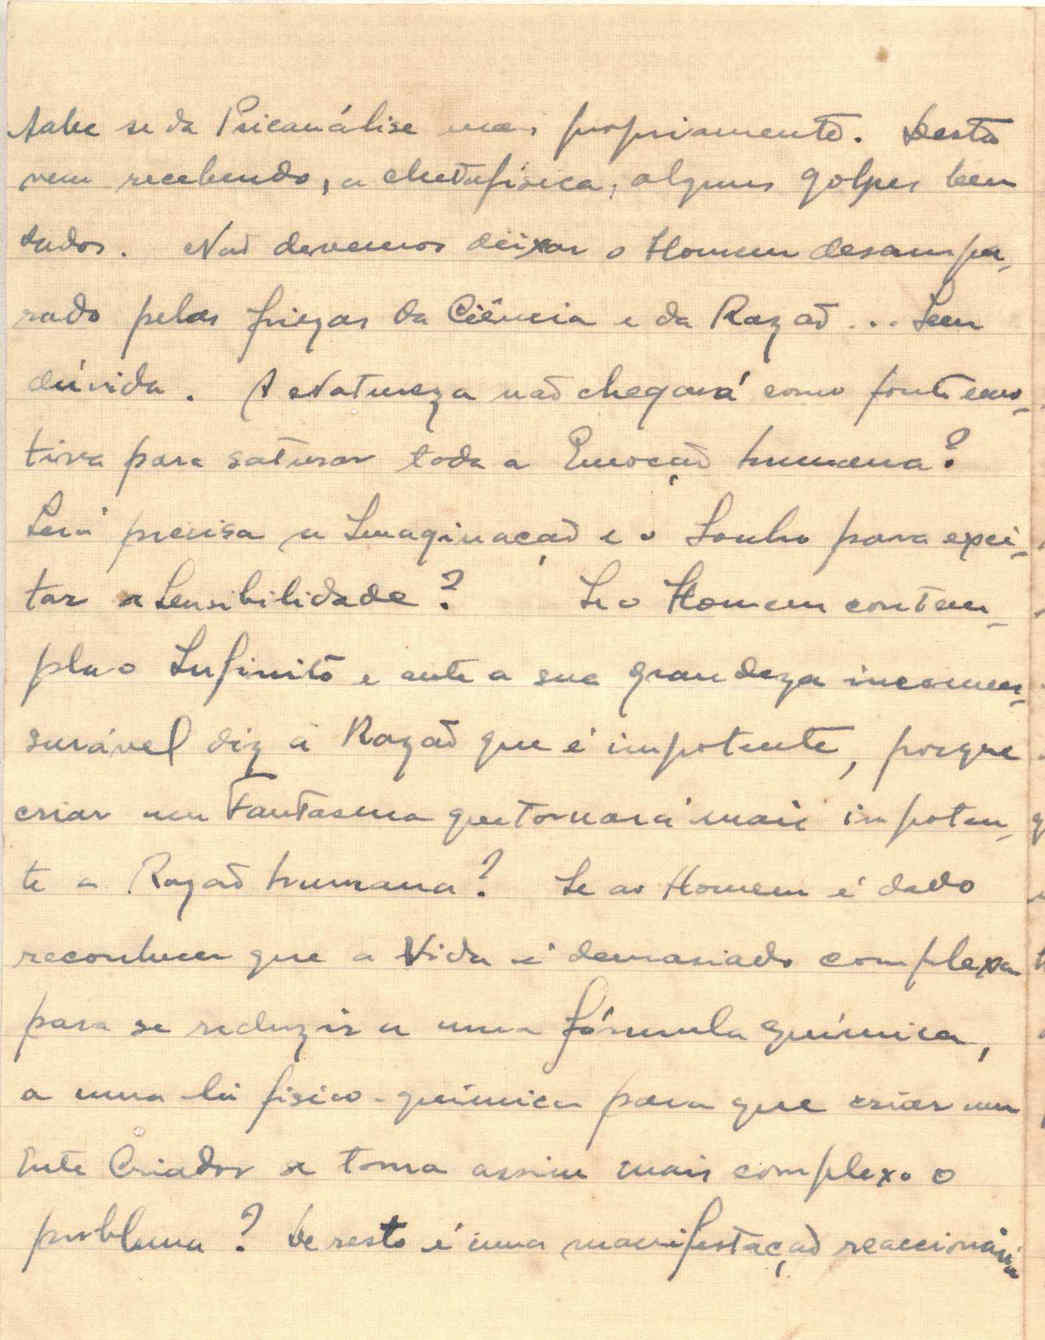 Sabe se da Psicanálise mais propriamente. Desta
vem recebendo, a Metafísica, alguns golpes bem
dados. Não devemos deixar o Homem desampa-
rado pelas friezas da Ciência e da Razão... Sem
dúvida. A Natureza não chegará como fonte emo-
tiva para saturar toda a Emoção humana?
Será precisa a Imaginação e o Sonho para exci-
tar a Sensibilidade? Se o Homem contem-
pla o Infinito e ante a sua grandeza incomen-
surável diz à Razão que é impotente, porque
criar um Fantasma que tornará mais impoten-
te a Razão humana? Se ao Homem é dado
reconhecer que a Vida é demasiado complexa
para se reduzir a uma fórmula química,
a uma lei fisico-química para que criar um
Ente Criador e torna assim mais complexo o
problema? De resto é uma manifestação reaccionária